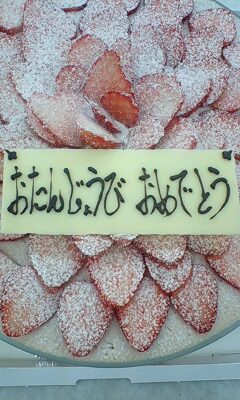 おたんじょうび おめでとう